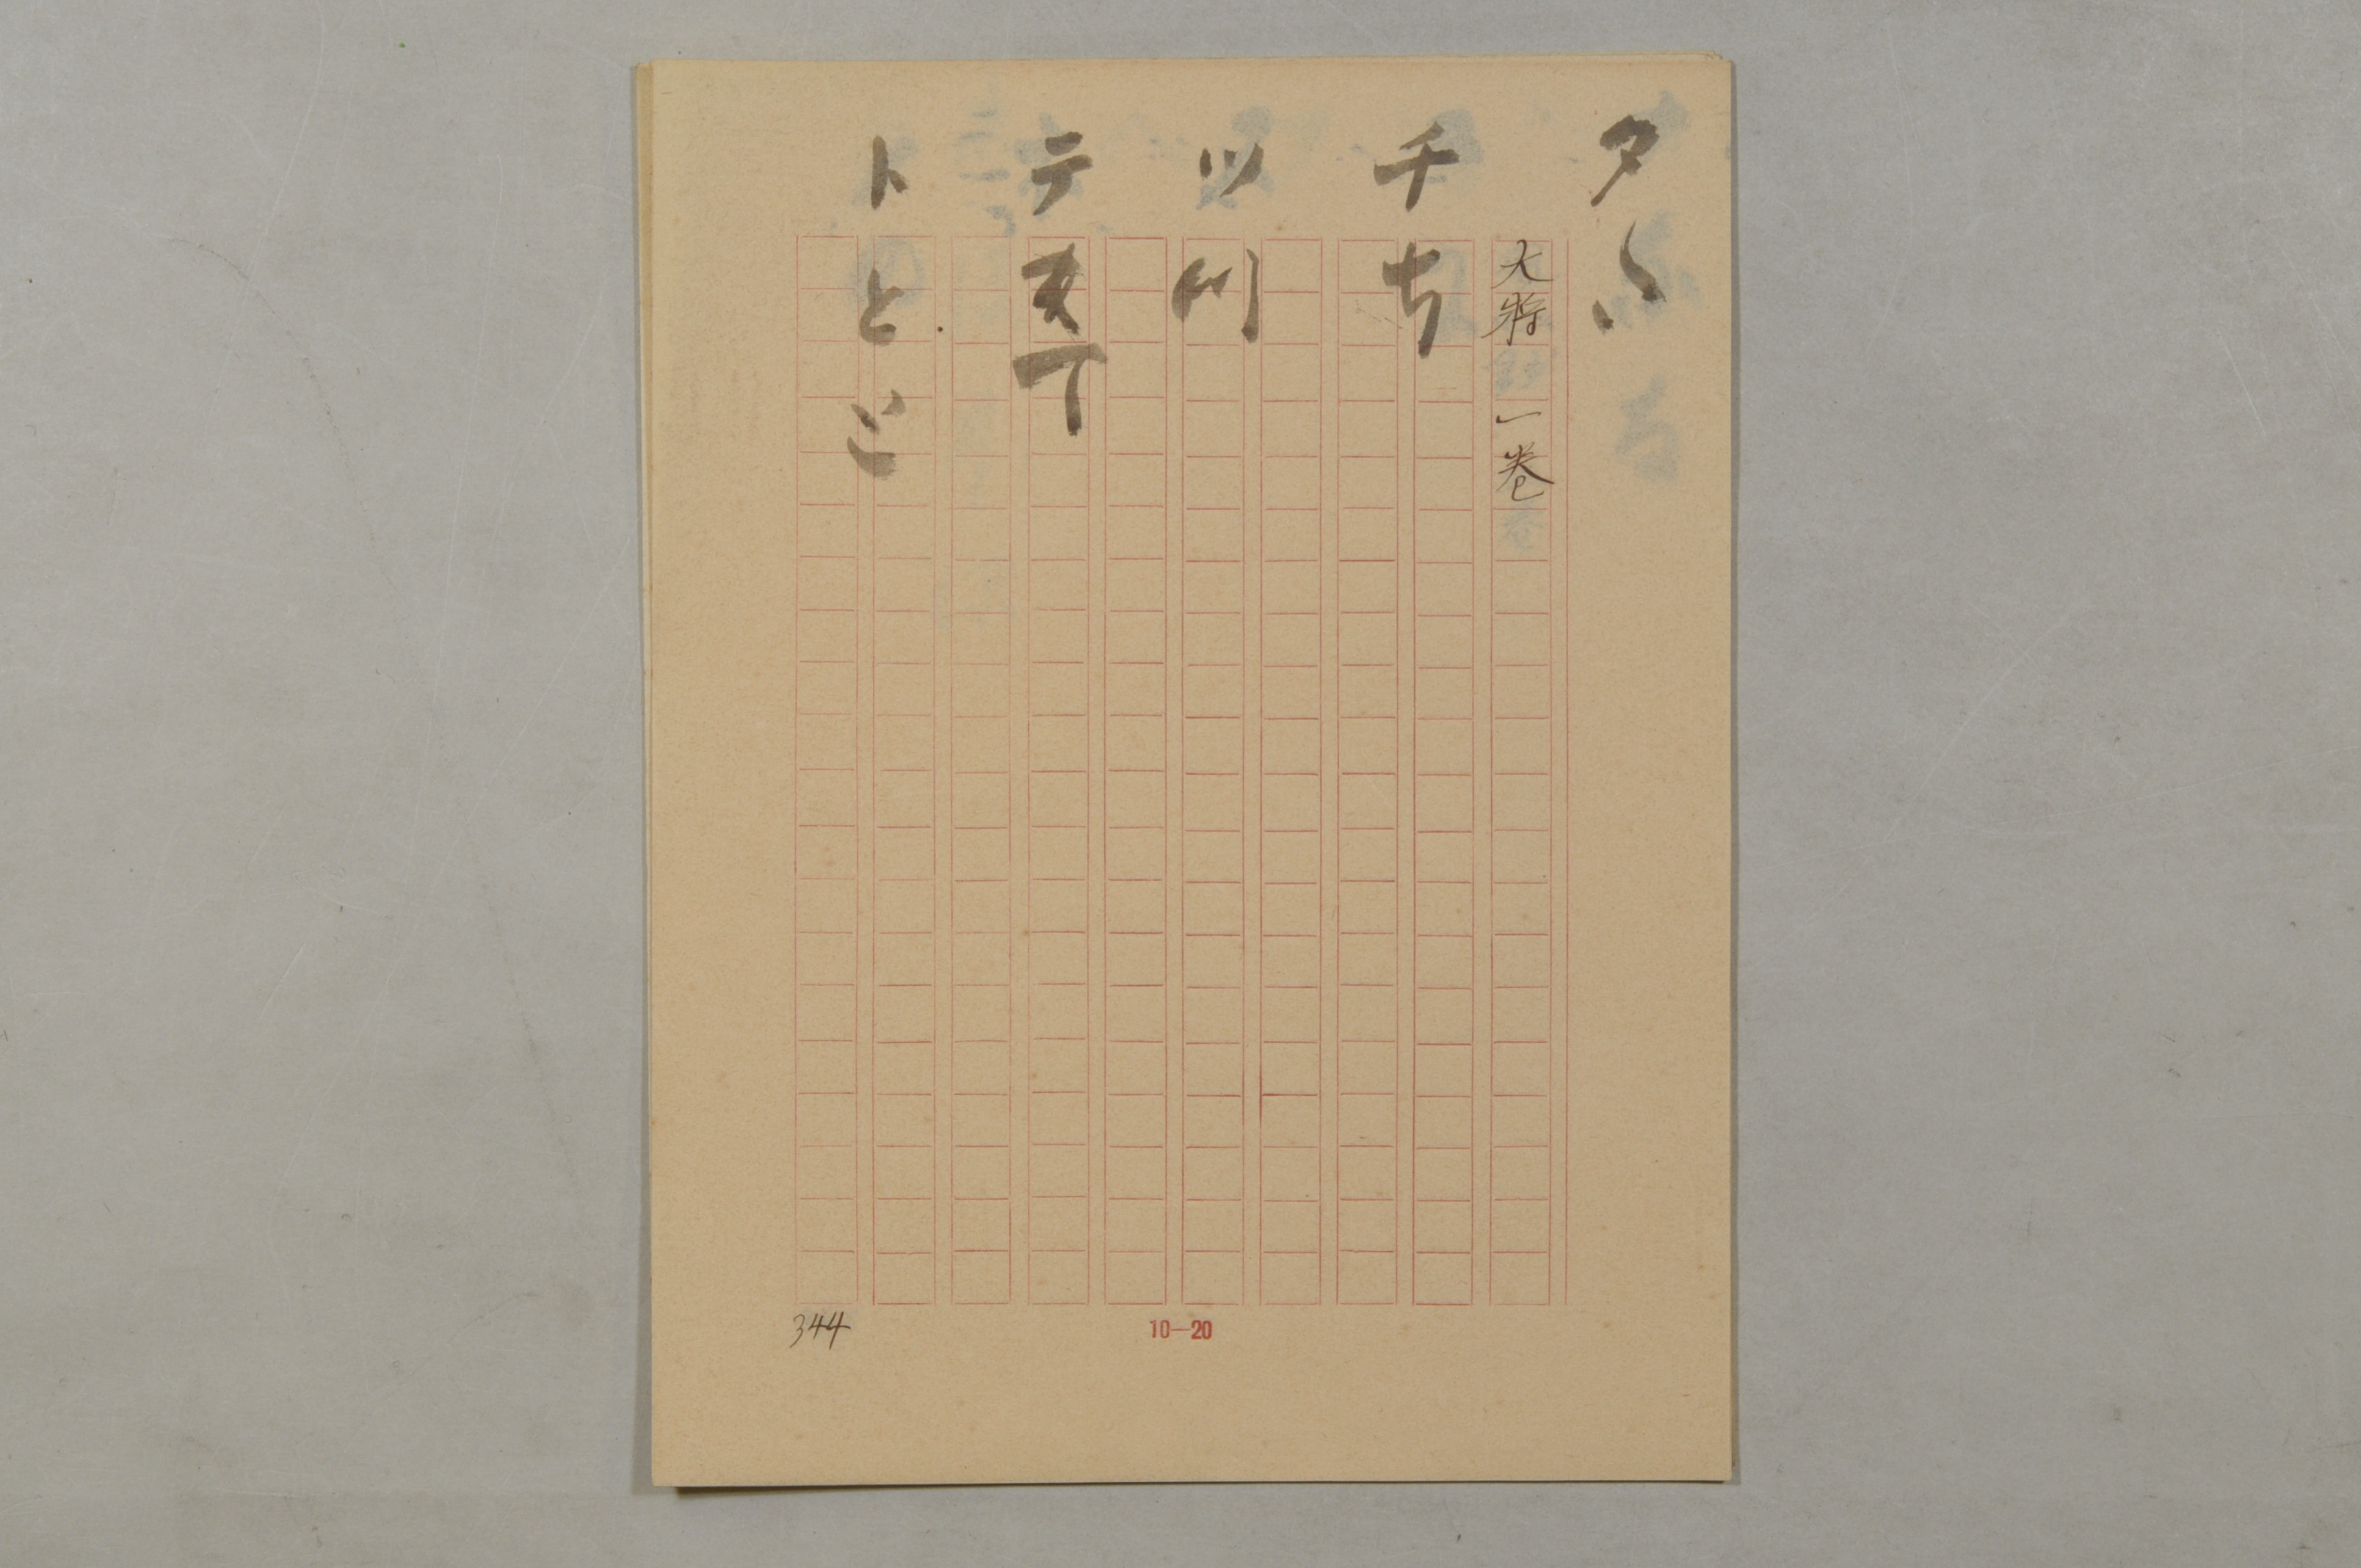 タ
大将 一巻
チ ち
ツ 川
テ 天 て
ト と
344
10—20